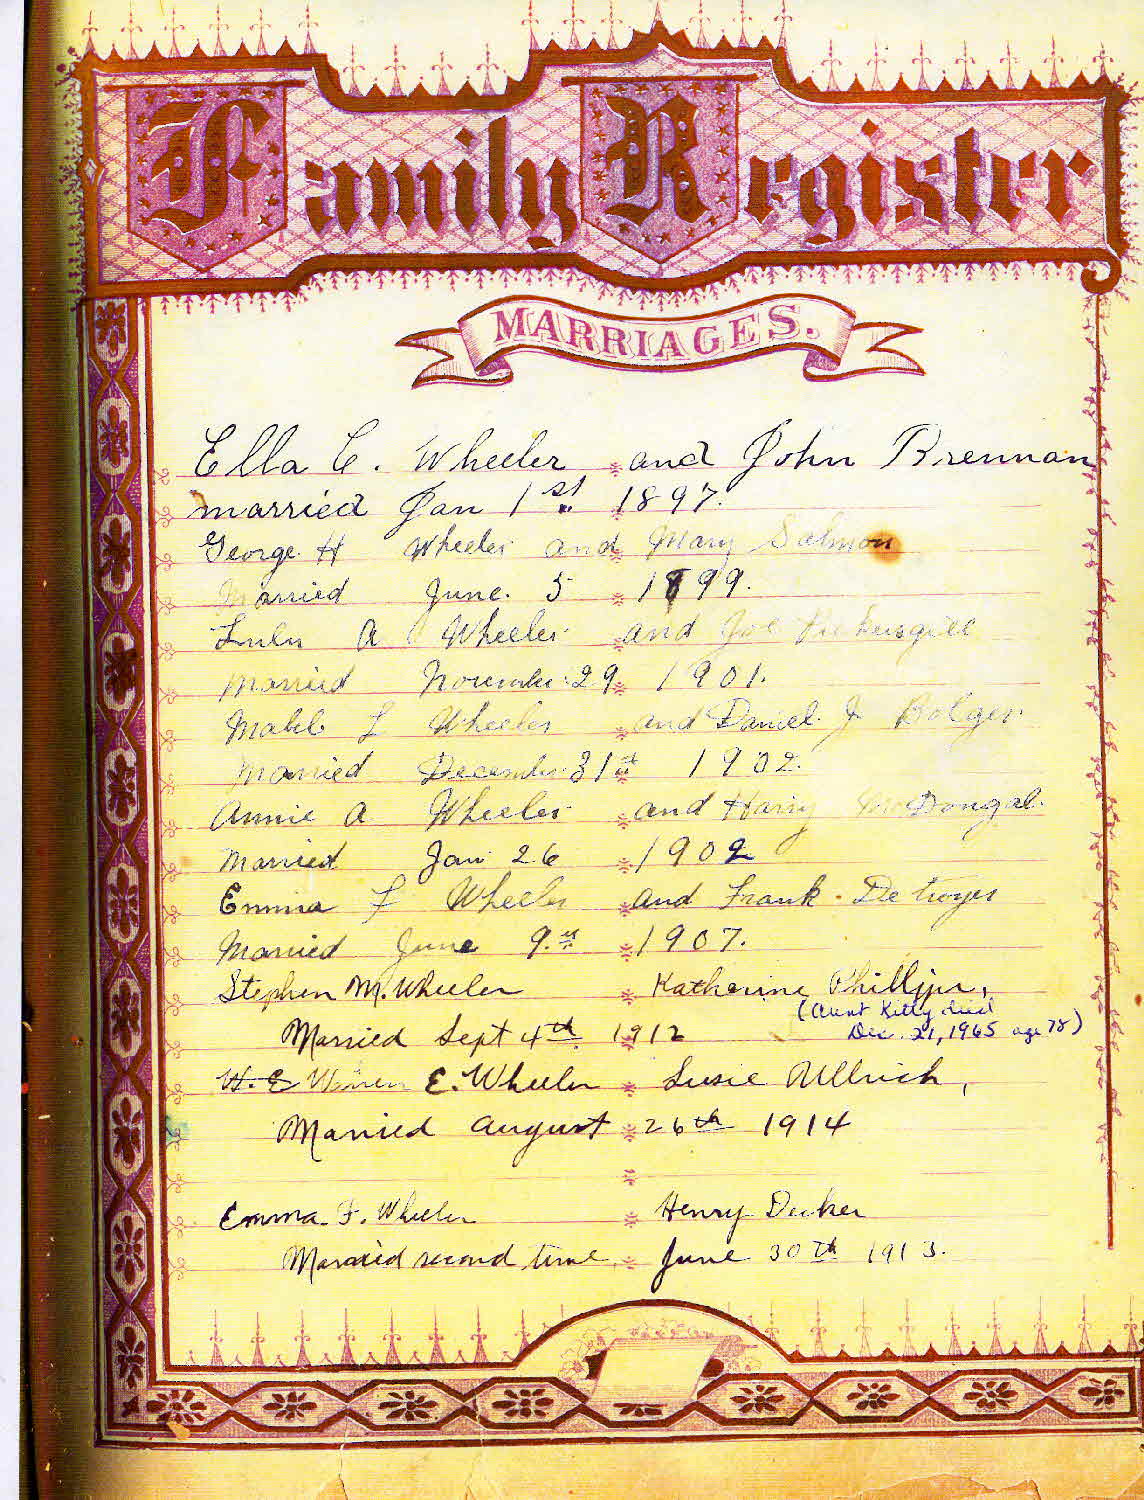 Family Register
MARRIAGES.
Ella C. Wheeler and John Brennan
married Jan 1st 1897.
George H Wheeler and Mary Salmon
Married June. 5 1899.
Lulu A Wheeler and Joe Pickersgill
Married November 29 1901.
Mabel L Wheeler and Daniel J Bolger
Married December 31st 1902.
Annie A Wheeler and Harry McDongal.
Married Jan 26 1902
Emma F Wheeler and Frank Detroyer
Married June 9th 1907.
Stephen M. Wheeler Katherine Phillips,
(Aunt Kitty died
Married Sept 4th 1912
Dec. 21, 1965 age 78)
W. E Warren E. Wheeler Susie Ullrich,
Married August 26th 1914
Emma F. Wheeler Henry Decker
Married second time, June 30th 1913.